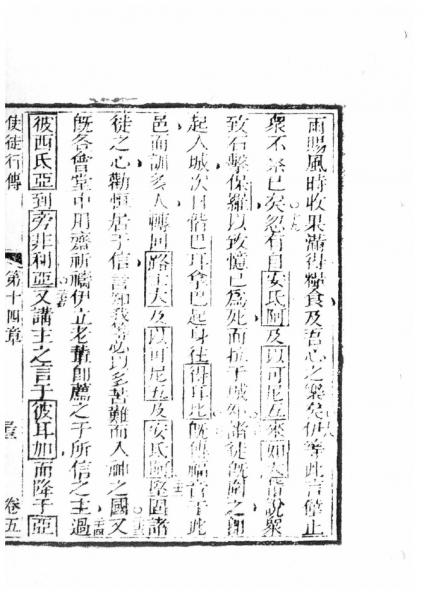 雨賜風時收果滿得糧食及吾心之樂矣伊等此言僅止
衆不祭已矣忽有自安氏阿及以可尼五來如大輩說衆
致石擊保羅以致憶已為死而拉于城外諸徒旣圍之卽
起入城次日偕巴耳拿巴起身往得耳比旣傳福音于此
邑而訓多人轉回路士大及以可尼五及安氏阿堅固諸
徒之心勸恒居于信言卻我等必以多苦難而入神之國又
旣各會堂中用齋祈禱伊立老輩卽薦之于所信之主過
彼西氏亞到旁非利亞又講主之言于彼耳加而降于亞
使徒行傳 第十四章 卷五